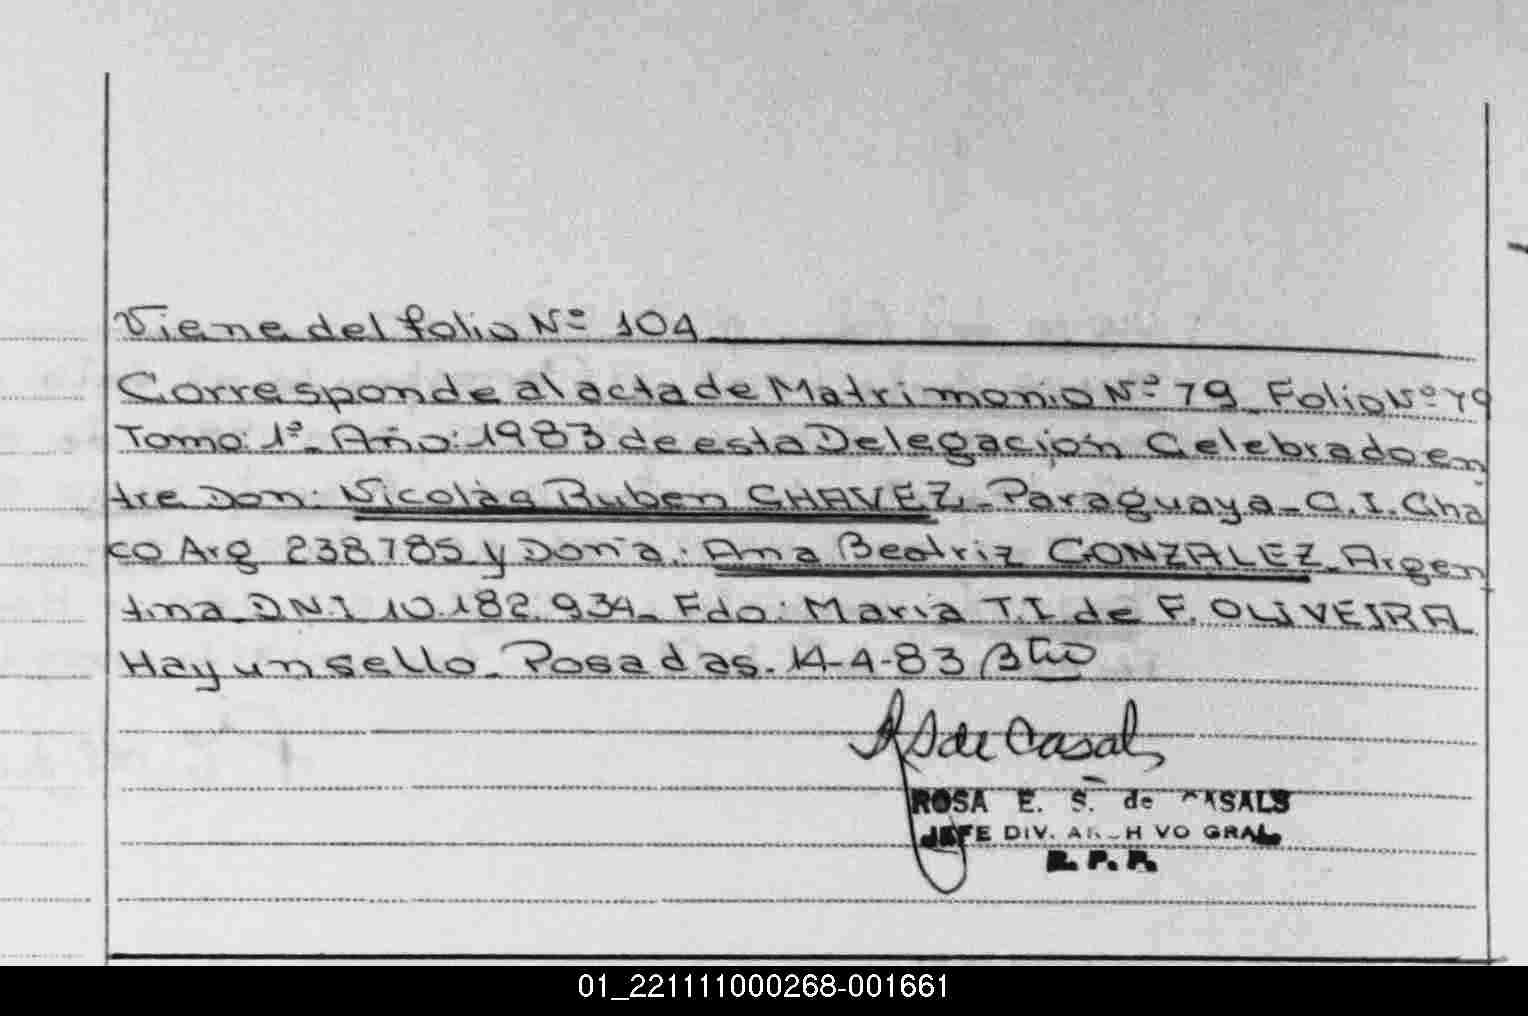 Viene del folio Nº 104
Corresponde al acta de Matrimonio Nº 79_ Folio Nº 79
Tomo: 1º_ Año: 1983 de esta Delegación Celebrado en
tre Don: Nicolás Ruben CHAVEZ_ Paraguaya_ C.I. Cha
co Arg 238.785 y Doña: Ana Beatriz GONZALEZ_ Argen
tina_ DNI 10.182.934_ Fdo: Maria T.I. de F. OLIVEIRA_
Hay un sello_ Posadas. 14-4-83
RS de Casals
ROSA E. S. de CASALS
JEFE DIV. ARCHIVO GRAL.
R. P. P.
01_221111000268-001661